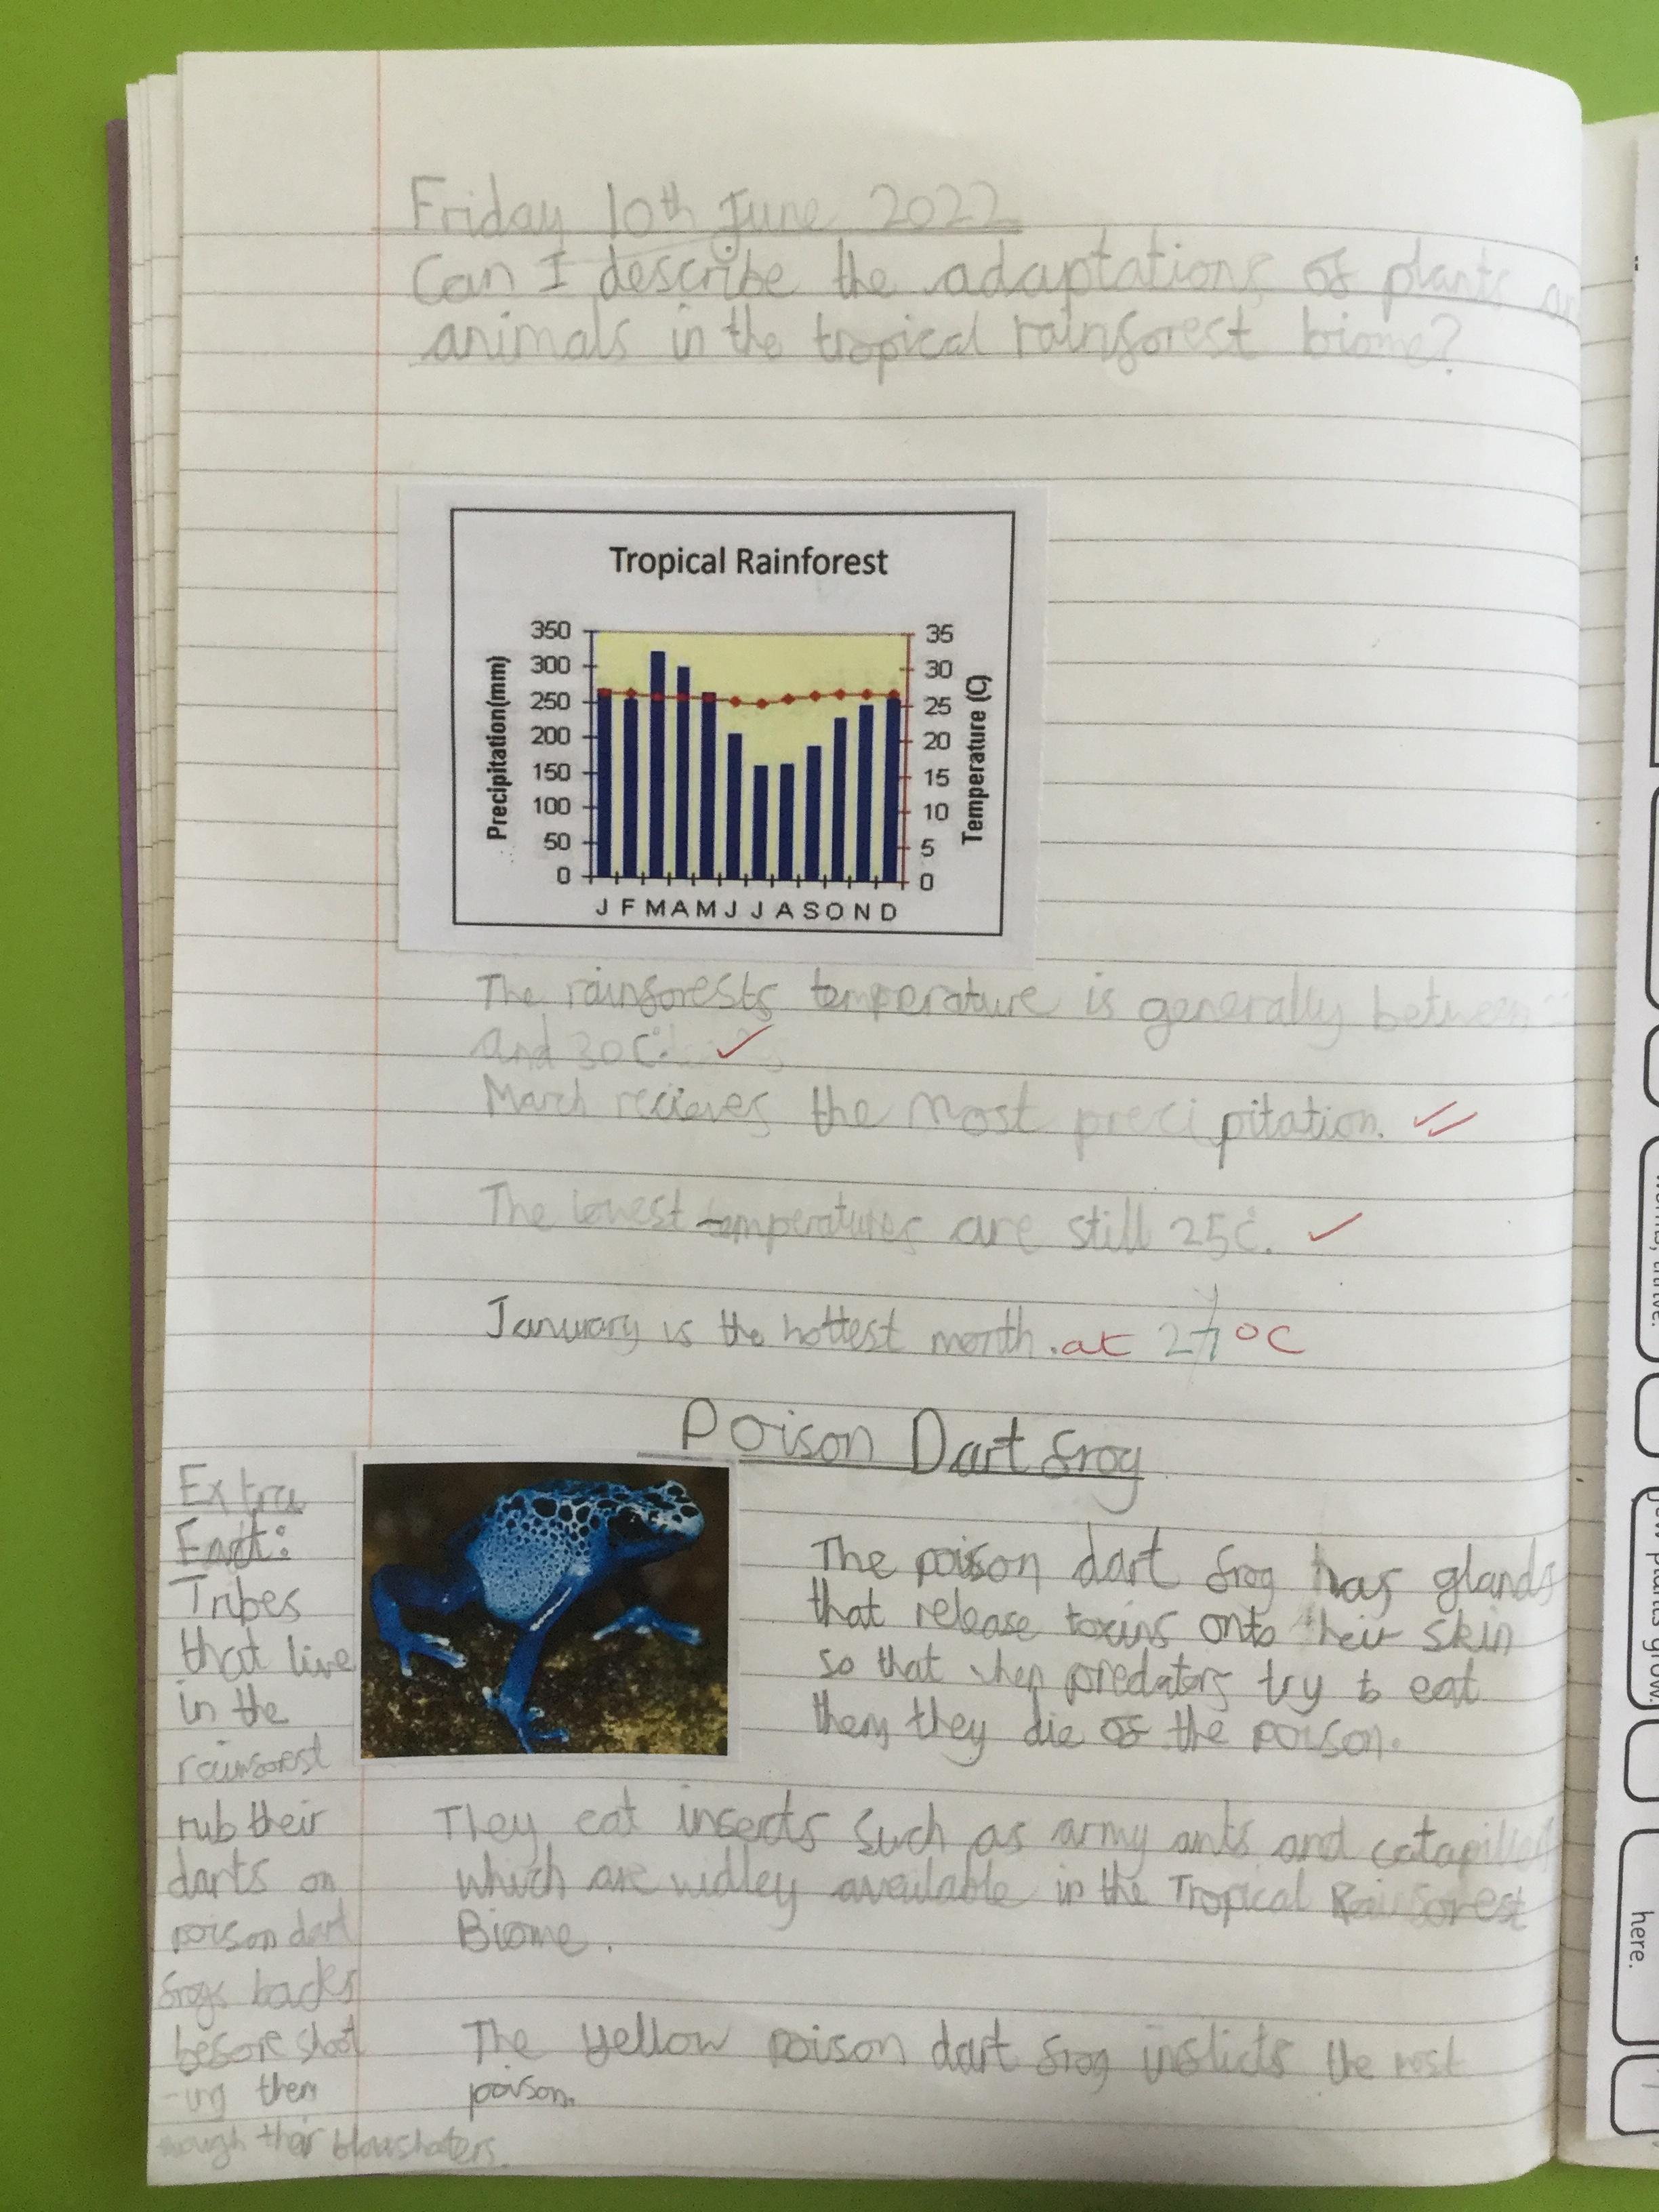 Friday 10th June 2022
Can I describe the adaptations of plants
animals in the tropical rainforest biome?
Tropical Rainforest
Precipitation(mm)
350
300
250
200
150
100
50
0
35
30
25
20
15
10
5
0
Temperature (C)
J F M A M J J A S O N D
The rainforests temperature is generally between
and 30c°.
March recieves the most precipitation.
The lowest temperatures are still 25c°.
January is the hottest month. at 27°C
Poison Dart frog
Extra
Fact:
Tribes
that live
in the
rainforest
rub their
darts on
poison dart
frogs backs
before shoot
-ing them
through their blowshooters.
The poison dart frog has glands
that release toxins onto their skin
so that when predators try to eat
them they die of the poison.
They eat insects such as army ants and
which are widley available in the Tropical Rainforest
Biome.
The yellow poison dart frog inflicts the most
poison.
here.